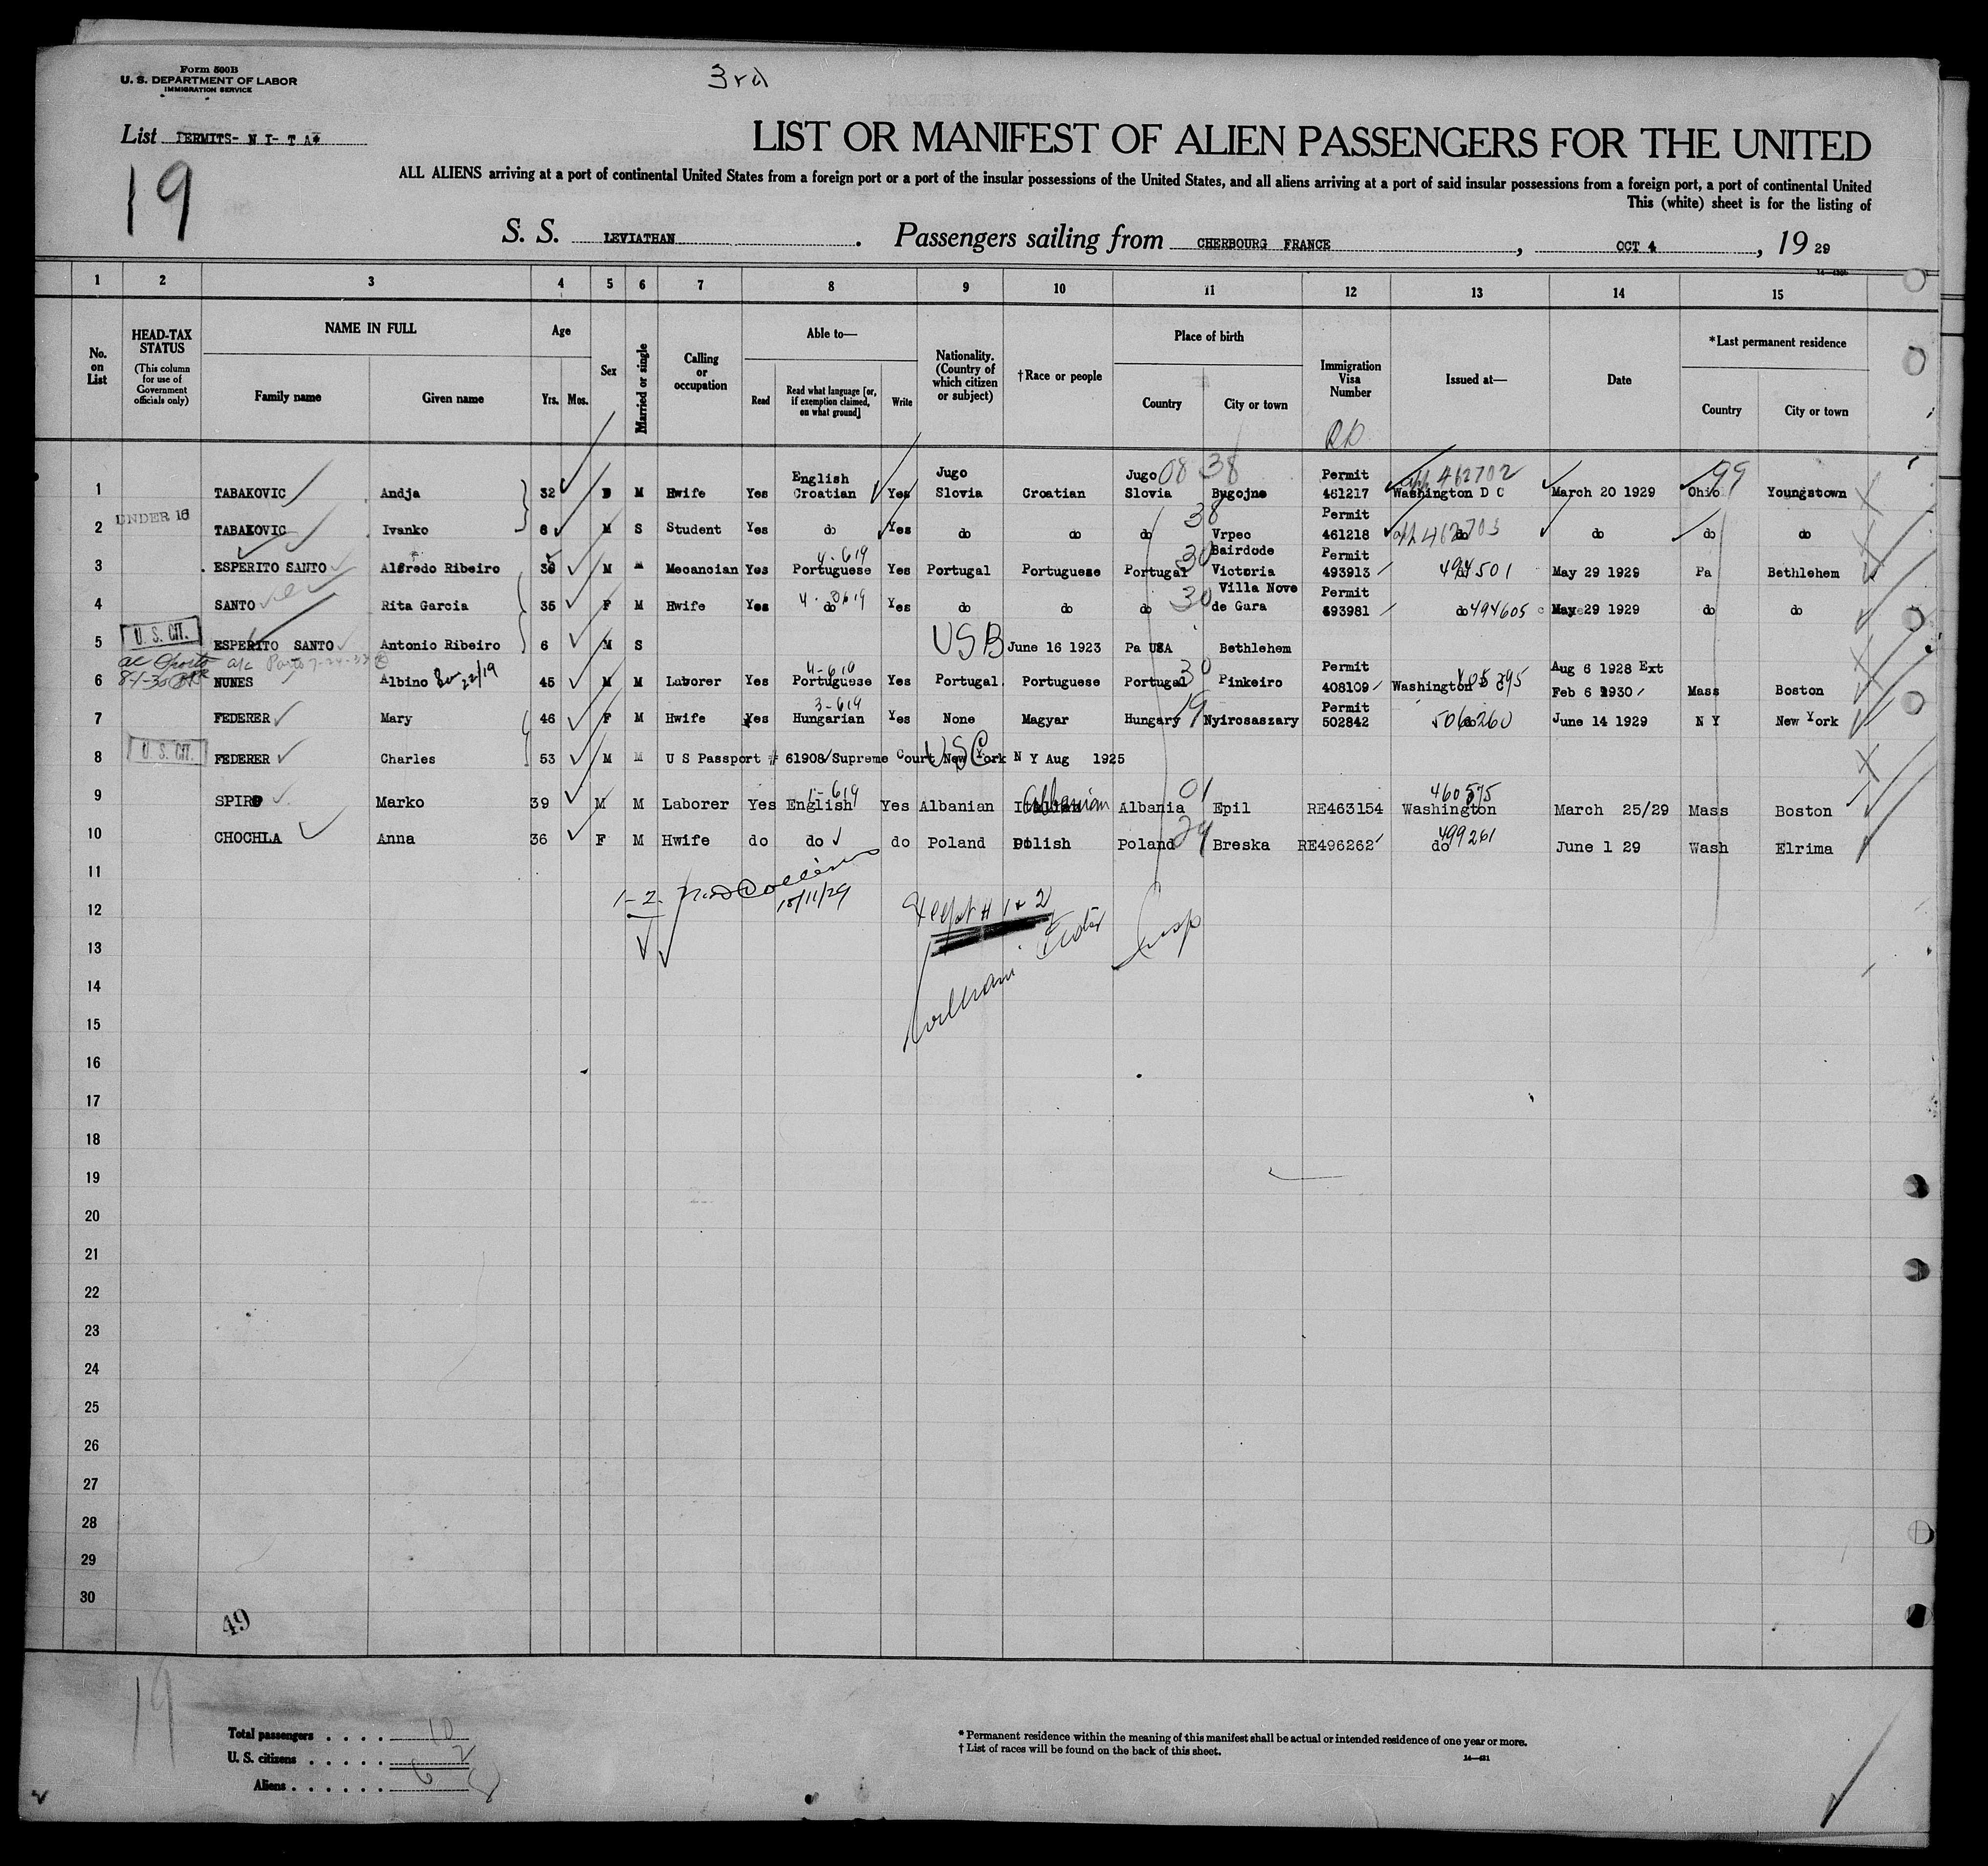 Form 500B
U. S. DEPARTMENT OF LABOR
IMMIGRATION SERVICE
3rd
List PERMITS- N I- T A*
19
LIST OR MANIFEST OF ALIEN PASSENGERS FOR THE UNITED
ALL ALIENS arriving at a port of continental United States from a foreign port or a port of the insular possessions of the United States, and all aliens arriving at a port of said insular possessions from a foreign port, a port of continental United
This (white) sheet is for the listing of
S. S. LEVIATHAN . Passengers sailing from CHERBOURG FRANCE , OCT 4 , 19 29
1 2 3 4 5 6 7 8 9 10 11 12 13 14 15
No. on List
HEAD-TAX STATUS
(This column for use of Government officials only)
NAME IN FULL
Family name Given name
Age
Yrs. Mos.
Sex
Married or single
Calling or occupation
Able to—
Read
Read what language [or, if exemption claimed, on what ground]
Write
Nationality. (Country of which citizen or subject)
†Race or people
Place of birth
Country City or town
Immigration Visa Number
Issued at—
Date
*Last permanent residence
Country City or town
English Jugo Jugo 08 38 Permit 462702 99
1 TABAKOVIC Andja 32 M Hwife Yes Croatian Yes Slovia Croatian Slovia Bugojne 461217 Washington D C March 20 1929 Ohio Youngstown
UNDER 16 38 Permit
2 TABAKOVIC Ivanko 8 M S Student Yes do Yes do do do Vrpec 461218 do 462703 do do do
4-619 30 Bairdode Permit
3 ESPERITO SANTO Alfredo Ribeiro 36 M M Mecancian Yes Portuguese Yes Portugal Portuguese Portugal Victoria 493913 494501 May 29 1929 Pa Bethlehem
30 Villa Nove Permit
4 SANTO Rita Garcia 35 F M Hwife Yes do Yes do do do de Gara 493981 do 494605 May 29 1929 do do
U. S. CIT.
5 ESPERITO SANTO Antonio Ribeiro 6 M S USB June 16 1923 Pa USA Bethlehem
4-619 30 Permit Aug 6 1928 Ext
6 NUNES Albino 45 M M Laborer Yes Portuguese Yes Portugal Portuguese Portugal Pinkeiro 408109 Washington Feb 6 1930 Mass Boston
3-619 19 Permit
7 FEDERER Mary 46 F M Hwife Yes Hungarian Yes None Magyar Hungary Nyirosaszary 502842 do 506260 June 14 1929 N Y New York
U. S. CIT. USC
8 FEDERER Charles 53 M M U S Passport # 61908/Supreme Court New York N Y Aug 1925
1-619 Albanian 01 460575
9 SPIRO Marko 39 M M Laborer Yes English Yes Albanian Albania Epil RE463154 Washington March 25/29 Mass Boston
24 499261
10 CHOCHLA Anna 36 F M Hwife do do do Poland Polish Poland Breska RE496262 do June 1 29 Wash Elrima
11
1-2
10/11/29
12
# 1 & 2
Insp
13
14
15
16
17
18
19
20
21
22
23
24
25
26
27
28
29
30
49
19
Total passengers . . . . 10
U. S. citizens . . . . . 2
Aliens . . . . . . 8
* Permanent residence within the meaning of this manifest shall be actual or intended residence of one year or more.
† List of races will be found on the back of this sheet.